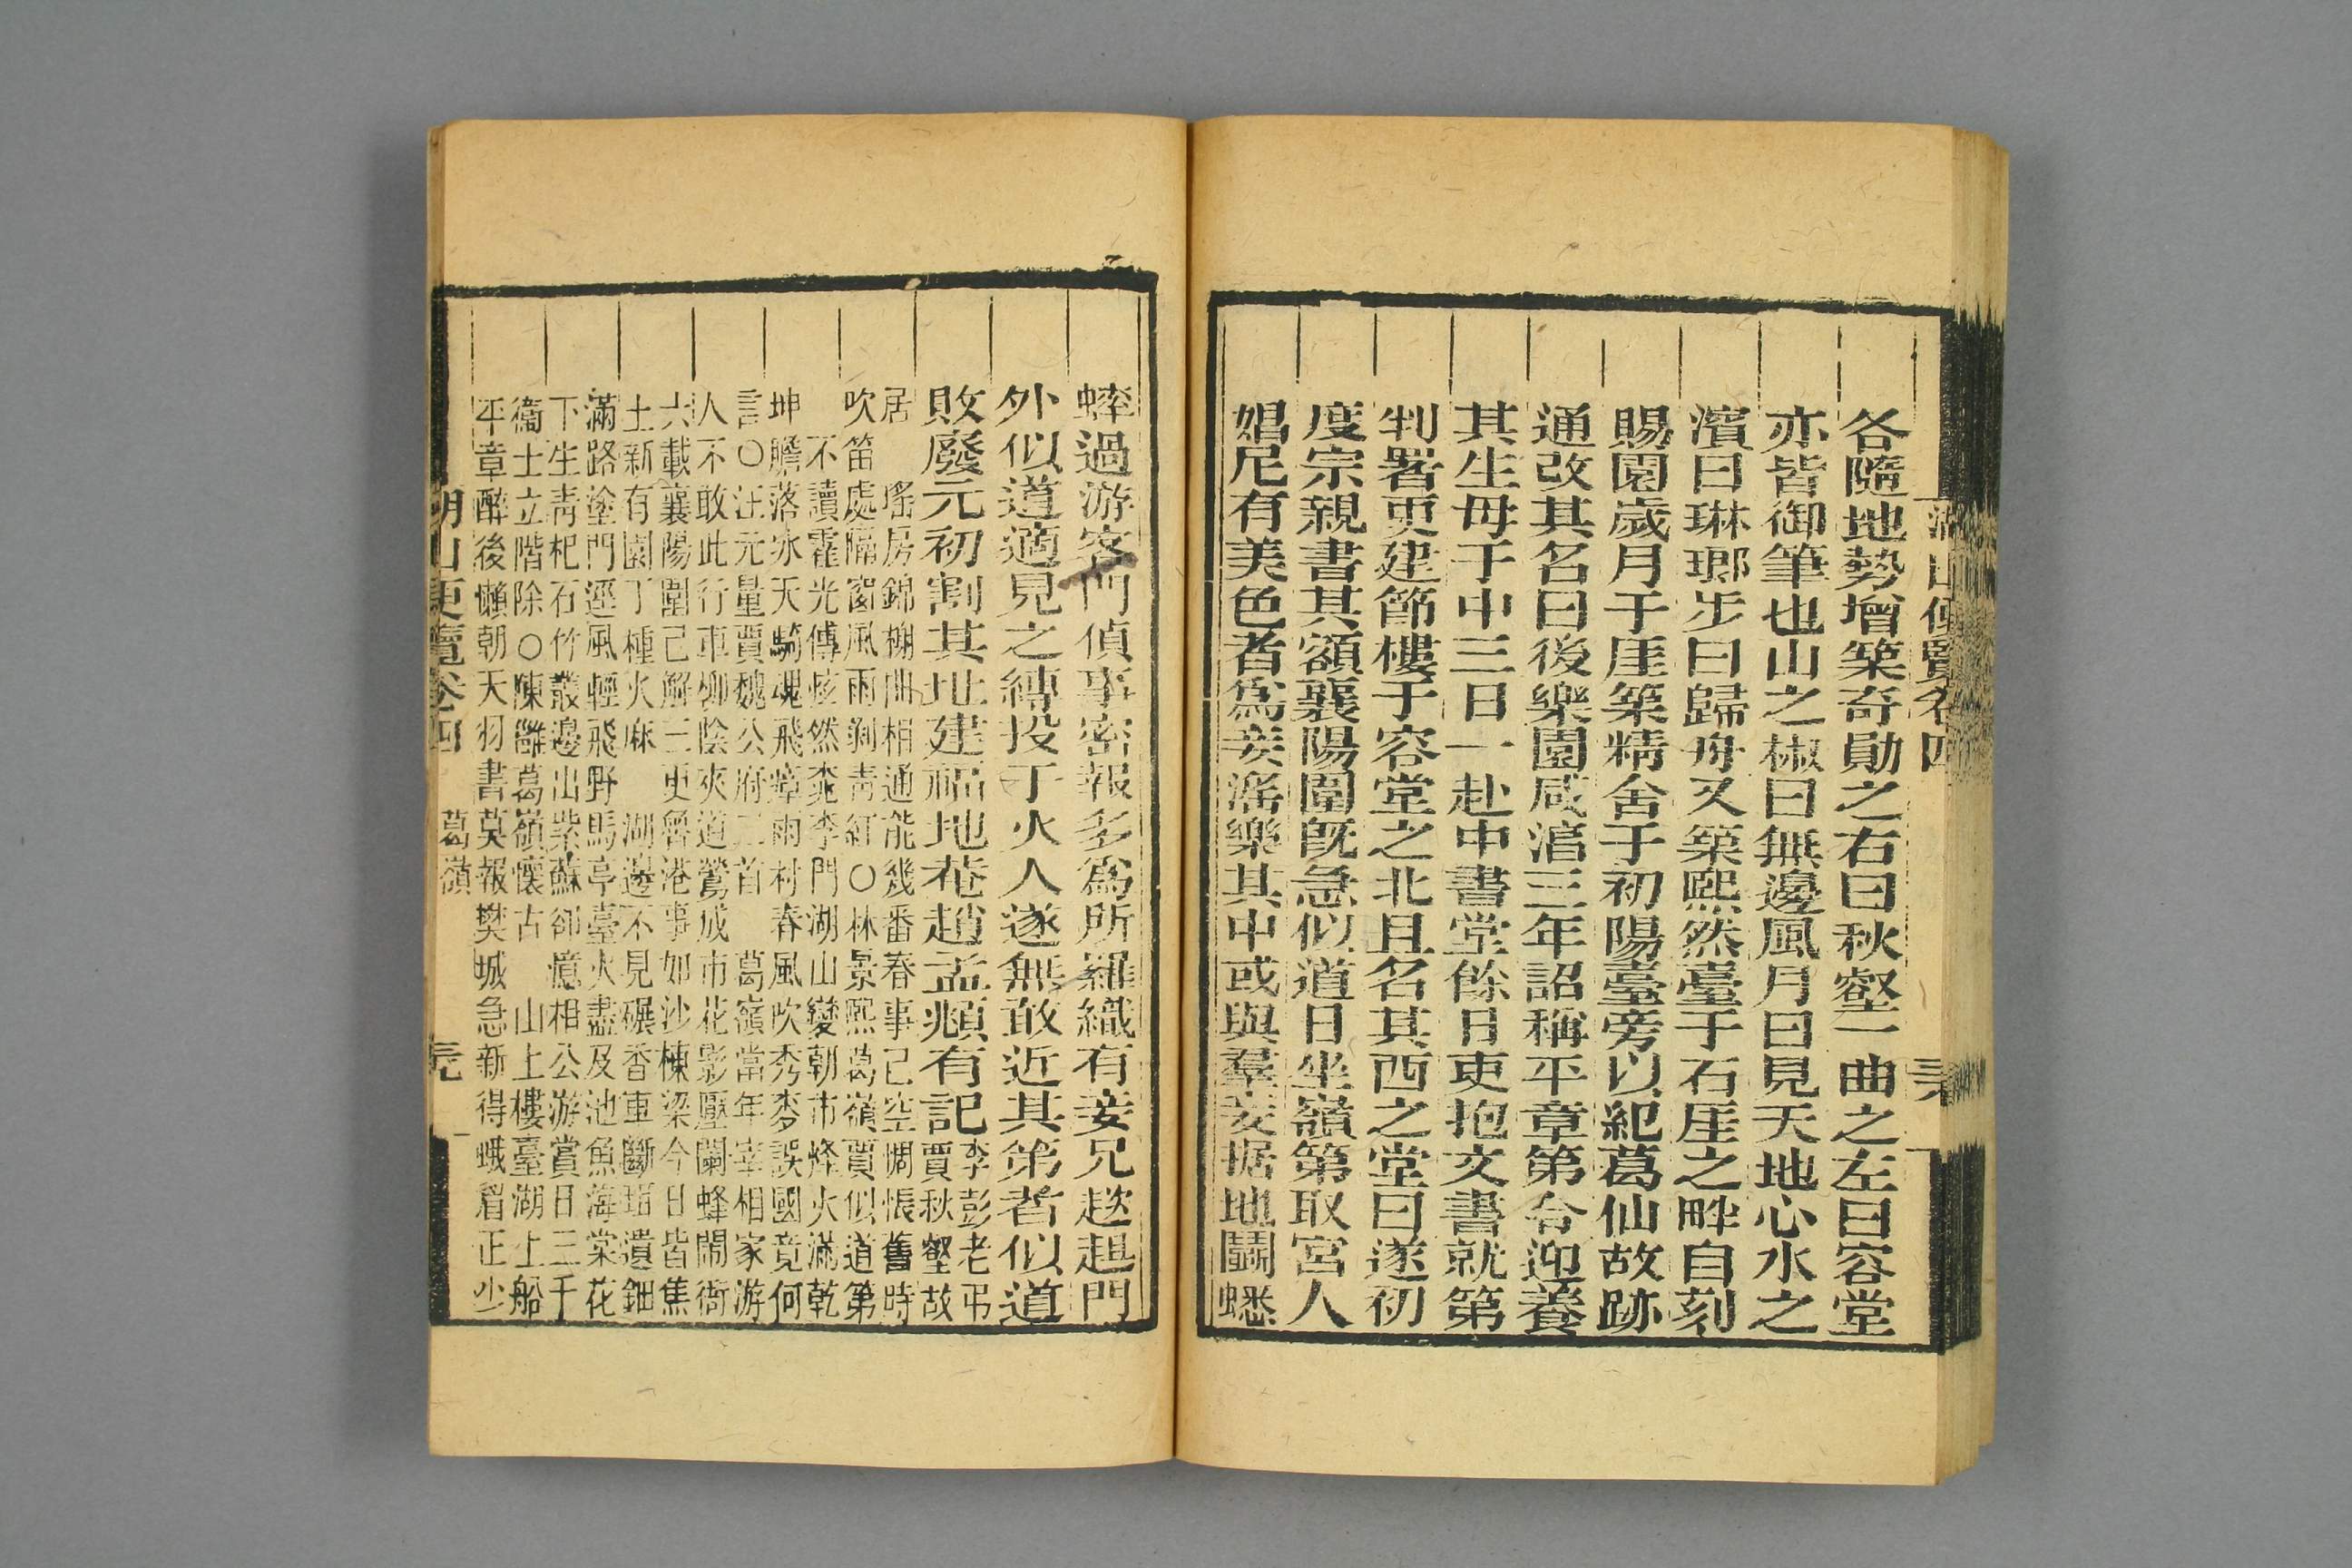 湖山便覽卷四
各隨地勢增築奇勛之右曰秋壑一曲之左曰容堂
亦皆御筆也山之椒曰無邊風月曰見天地心水之
濱曰琳瑯步曰歸舟又築熙然臺于石厓之畔自刻
賜園歲月于厓築精舍于初陽臺旁以紀葛仙故跡
通改其名曰後樂園咸淳三年詔稱平章第令迎養
其生母于中三日一赴中書堂餘日吏抱文書就第
判署更建節樓于容堂之北且名其西之堂曰遂初
度宗親書其額襄陽圍旣急似道日坐嶺第取宮人
娼尼有美色者爲妾滛樂其中或與羣妾据地鬭蟋
蟀過游客門偵事密報多爲所羅織有妾兄趑趄門
外似道適見之縛投于火人遂無敢近其第者似道
敗廢元初割其址建福地菴趙孟頫有記李彭老弔
賈秋壑故
居 瑤房錦榭曲相通能幾番春事已空惆悵舊時
吹笛處隔窗風雨剝青紅○林景熙葛嶺賈似道第
不讀霍光傳然李門湖山變朝市烽火滿乾
坤膽落氷天騎魂飛瘴雨村春風吹秀麥誤國竟何
言○汪元量賈魏公府二首 葛嶺當年宰相家游
人不敢此行車柳陰夾道鶯成市花影壓闌蜂鬧衙
六載襄陽圍已解三更魯港事如沙棟梁今日皆焦
土新有園丁種火麻 湖邊不見碾香車斷珇遺鈿
滿路塗門逕風輕飛野馬亭臺火盡及池魚海棠花
下生靑杞石竹叢邊出紫蘇卻憶相公游賞日三千
衞士立階除○陳雝葛嶺懷古 山上樓臺湖上船
平章醉後懶朝天羽書莫報樊城急新得蛾眉正少
湖山便覽卷四 葛嶺